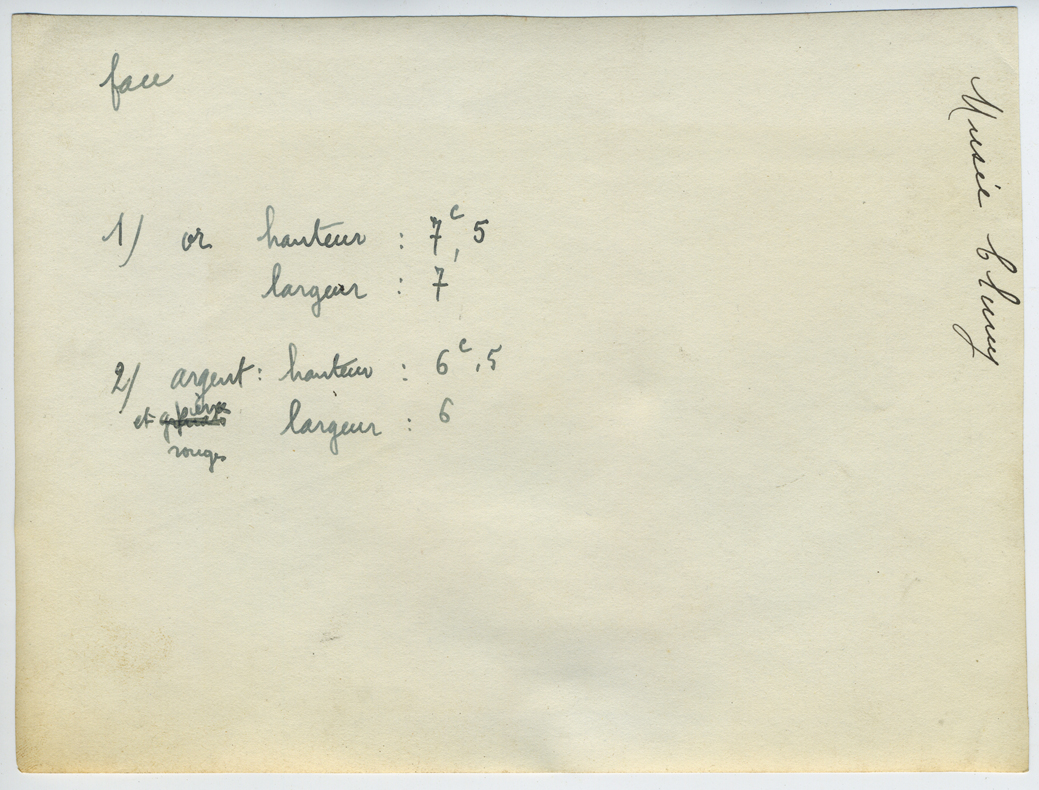 face
1) or hauteur : 7c,5
largeur : 7
2) argent : hauteur : 6c,5
et pierres largeur : 6
rouges
Musée Cluny